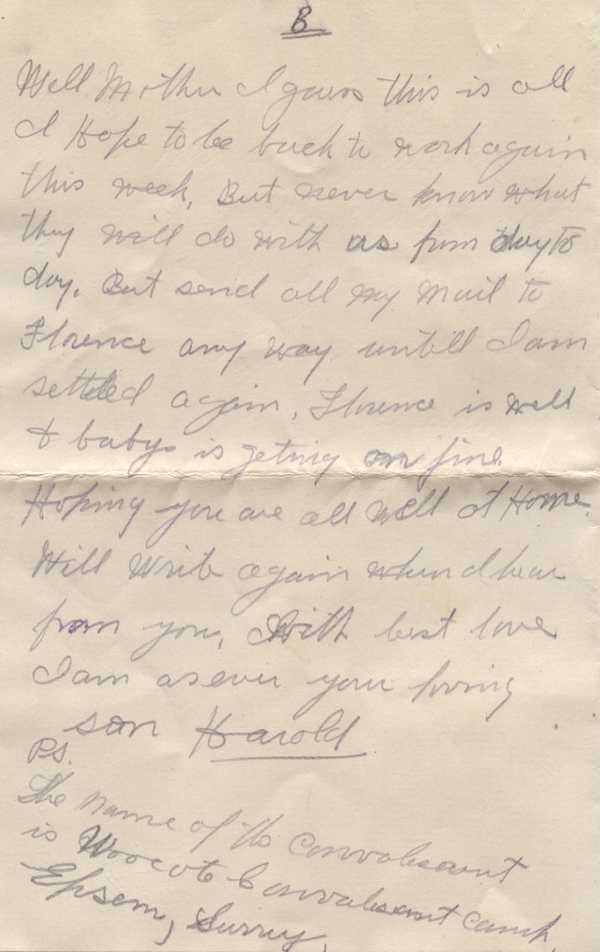 B
Well Mother I guess this is all
I Hope to be back to work again
this week, But never know what
they will do with us from day to
day. But send all my mail to
Florence any way untill I am
settled again. Florence is well
& babys is geting on fine.
Hoping you are all well at Home.
Will Write again when I hear
from you, With best love
I am as ever your loving
son Harold
P.S.
The name of the Convalescent
is Woocote Convalescent Camp,
Epsem, Surrey.